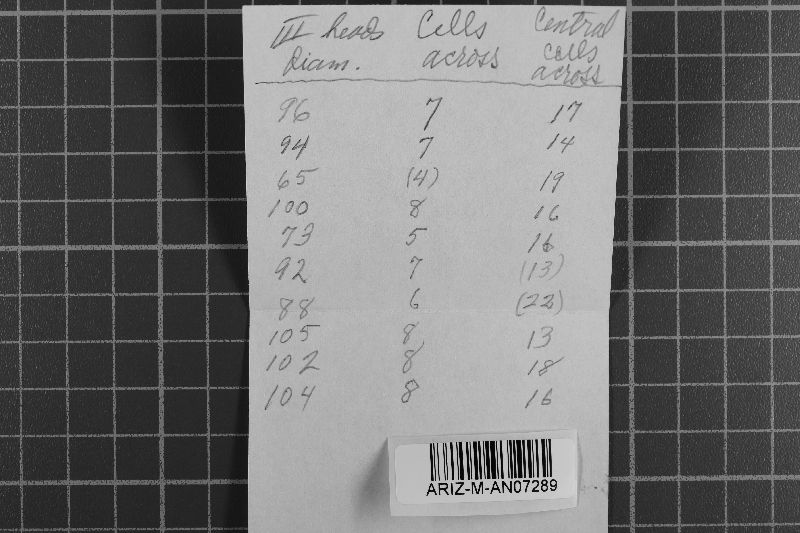 III heads Cells Central
Diam. across cells
across
96 7 17
94 7 14
65 (4) 19
100 8 16
73 5 16
92 7 (13)
88 6 (22)
105 8 13
102 8 18
104 8 16
ARIZ-M-AN07289